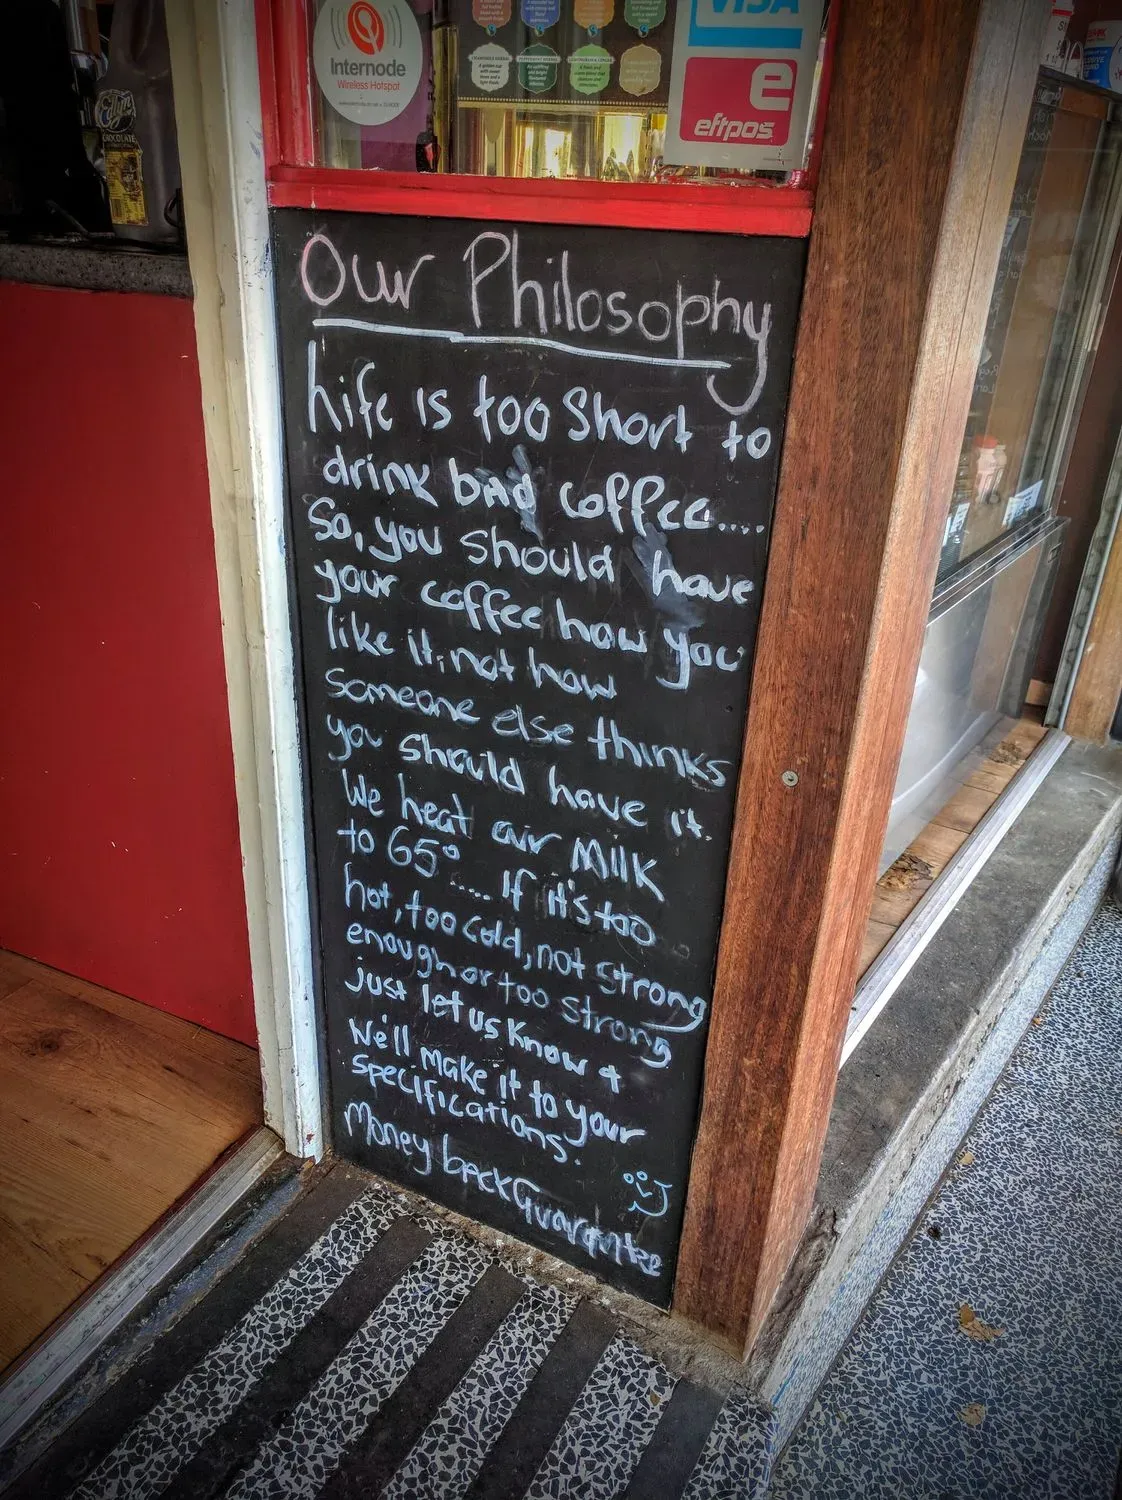 VISA
Internode
Wireless Hotspot
e
eftpos
CHOCOLATE
Our Philosophy
Life is too short to
drink bad coffee....
So, you should have
your coffee how you
like it, not how
someone else thinks
you should have it.
We heat our Milk
to 65° ..... If it's too
hot, too cold, not strong
enough or too strong
just let us know &
We'll make it to your
specifications.
Money back Guarantee